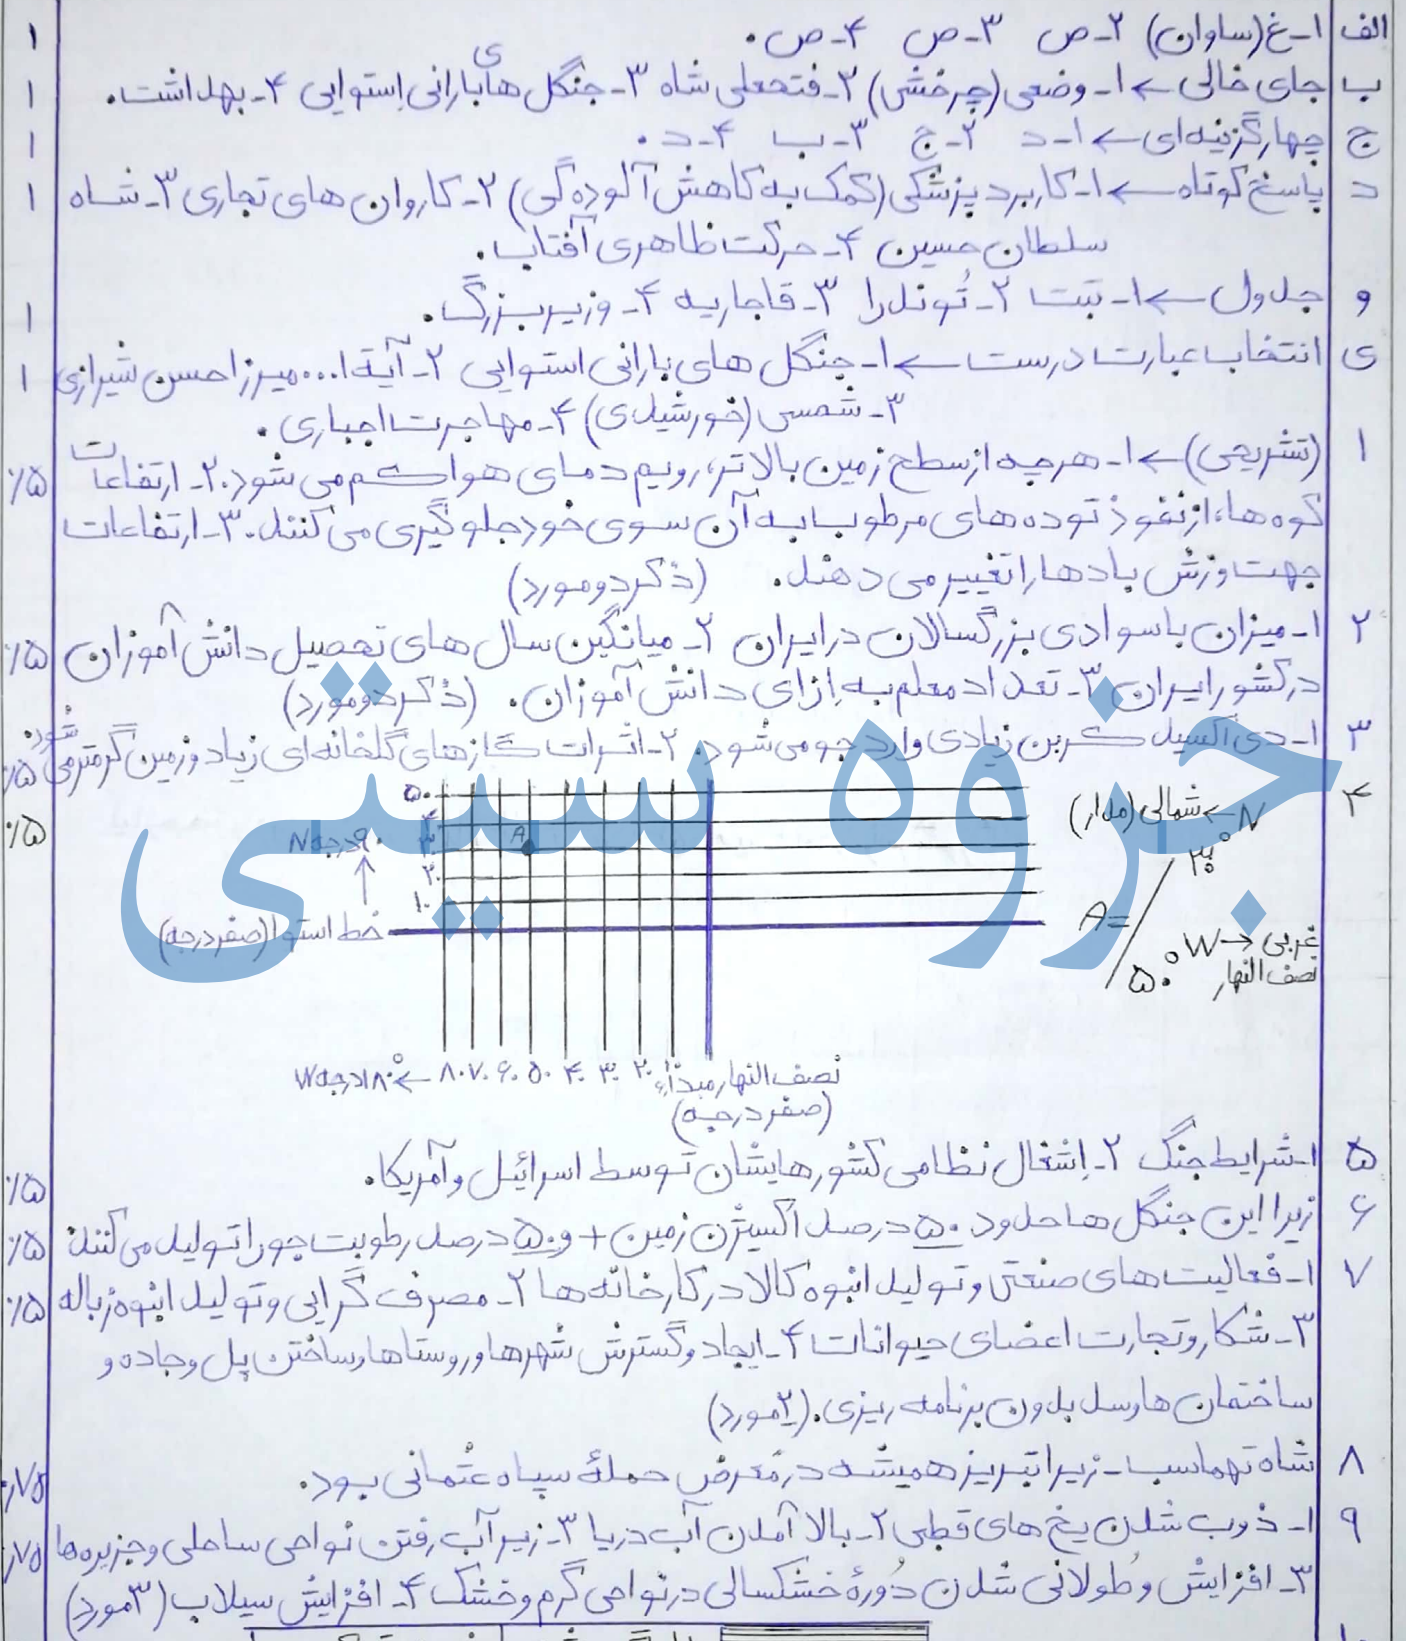 الف ۱ـ غ (ساوان) ۲ـ ص ۳ـ ص ۴ـ ص. ۱
ب جای خالی ← ۱ـ وضعی (چرخشی) ۲ـ فتحعلی شاه ۳ـ جنگل های بارانی اِستوایی ۴ـ بهداشت. ۱
ج چهارگزینه‌ای ← ۱ـ د ۲ـ ج ۳ـ ب ۴ـ د. ۱
د پاسخ کوتاه ← ۱ـ کاربرد پزشکی (کمک به کاهش آلوده گی) ۲ـ کاروان های تجاری ۳ـ شاه ۱
سلطان حسین ۴ـ حرکت ظاهری آفتاب.
و جدول ← ۱ـ تبت ۲ـ تُوندرا ۳ـ قاجاریه ۴ـ وزیر بزرگ. ۱
ی انتخاب عبارت درست ← ۱ـ جنگل های بارانی استوایی ۲ـ آیة ا... میرزا حسن شیرازی ۱
۳ـ شمسی (خورشیدی) ۴ـ مهاجرت اجباری.
۱ (تشریحی) ← ۱ـ هرچه از سطح زمین بالاتر، رویم دمای هوا کم می شود. ۲ـ ارتفاعات ۵٪
کوه ها، از نفوذ توده های مرطوب به آن سوی خود جلوگیری می کنند. ۳ـ ارتفاعات
جهت وزش بادها را تغییر می دهند. (ذکر دو مورد)
۲ ۱ـ میزان باسوادی بزرگسالان در ایران ۲ـ میانگین سال های تحصیل دانش آموزان ۵٪
در کشور ایران ۳ـ تعداد معلم به اِزای دانش آموزان. (ذکر دو مورد)
۳ ۱ـ دی اکسید کربن زیادی وارد جو می شود. ۲ـ اثرات گازهای گلخانه ای زیاد و زمین گرمتر می شود. ۵٪
۴ N ← شمالی (مدار) ۵٪
۵۰
۴۰
۳۰
۲۰
۱۰
A
۹۰ درجه N
خط استوا (صفر درجه)
A = ۳۰° / ۵۰° W → غربی
نصف النهار
نصف النهار مبداء ۲۰ ۳۰ ۴۰ ۵۰ ۶۰ ۷۰ ۸۰ ← ۱۸۰ درجه W
(صفر درجه)
۵ ۱ـ شرایط جنگ ۲ـ اِشغال نظامی کشورهایشان توسط اسرائیل و آمریکا. ۵٪
۶ زیرا این جنگل ها حدود ۵۰ درصد اکسیژن زمین + و ۵۰ درصد رطوبت جو را تولید می کنند ۵٪
۷ ۱ـ فعالیت های صنعتی و تولید انبوه کالا در کارخانه ها ۲ـ مصرف گرایی و تولید انبوه زباله ۵٪
۳ـ شکار و تجارت اعضای حیوانات ۴ـ ایجاد و گسترش شهرها و روستاها و ساختن پل و جاده و
ساختمان ها و سد بدون برنامه ریزی. (۲ مورد)
۸ شاه تهماسب ـ زیرا تبریز همیشه در مَعرض حملۀ سپاه عُثمانی بود. ۷۵٪
۹ ۱ـ ذوب شدن یخ های قطبی ۲ـ بالا آمدن آب دریا ۳ـ زیر آب رفتن نواحی ساحلی و جزیره ها ۷۵٪
۳ـ افزایش و طُولانی شدن دُورۀ خشکسالی در نواحی گرم و خشک ۴ـ افزایش سیلاب (۳ مورد)
جزوه سیتی